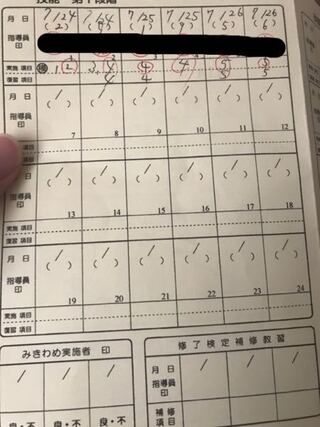 技能 第1段階
月 日 7/24 7/24 7/25 7/25 7/26 7/26
指導員 印 (2) (2) (9) (5) (6)
実施 項目 1 2 3 4 4 4 5 5
復習 項目 4 4 5
月 日 / / / / / /
指導員 印 ( ) ( ) ( ) ( ) ( ) ( )
7 8 9 10 11 12
項目
復習 項目
月 日 / / / / / /
指導員 印 ( ) ( ) ( ) ( ) ( ) ( )
13 14 15 16 17 18
実施 項目
復習 項目
月 日 / / / / / /
指導員 印 ( ) ( ) ( ) ( ) ( ) ( )
19 20 21 22 23 24
実施 項目
復習 項目
みきわめ実施者 印
/ / /
良・不 良・不 良・不
修了検定補修教習
月 日 / / /
指導員 印
補修 項目